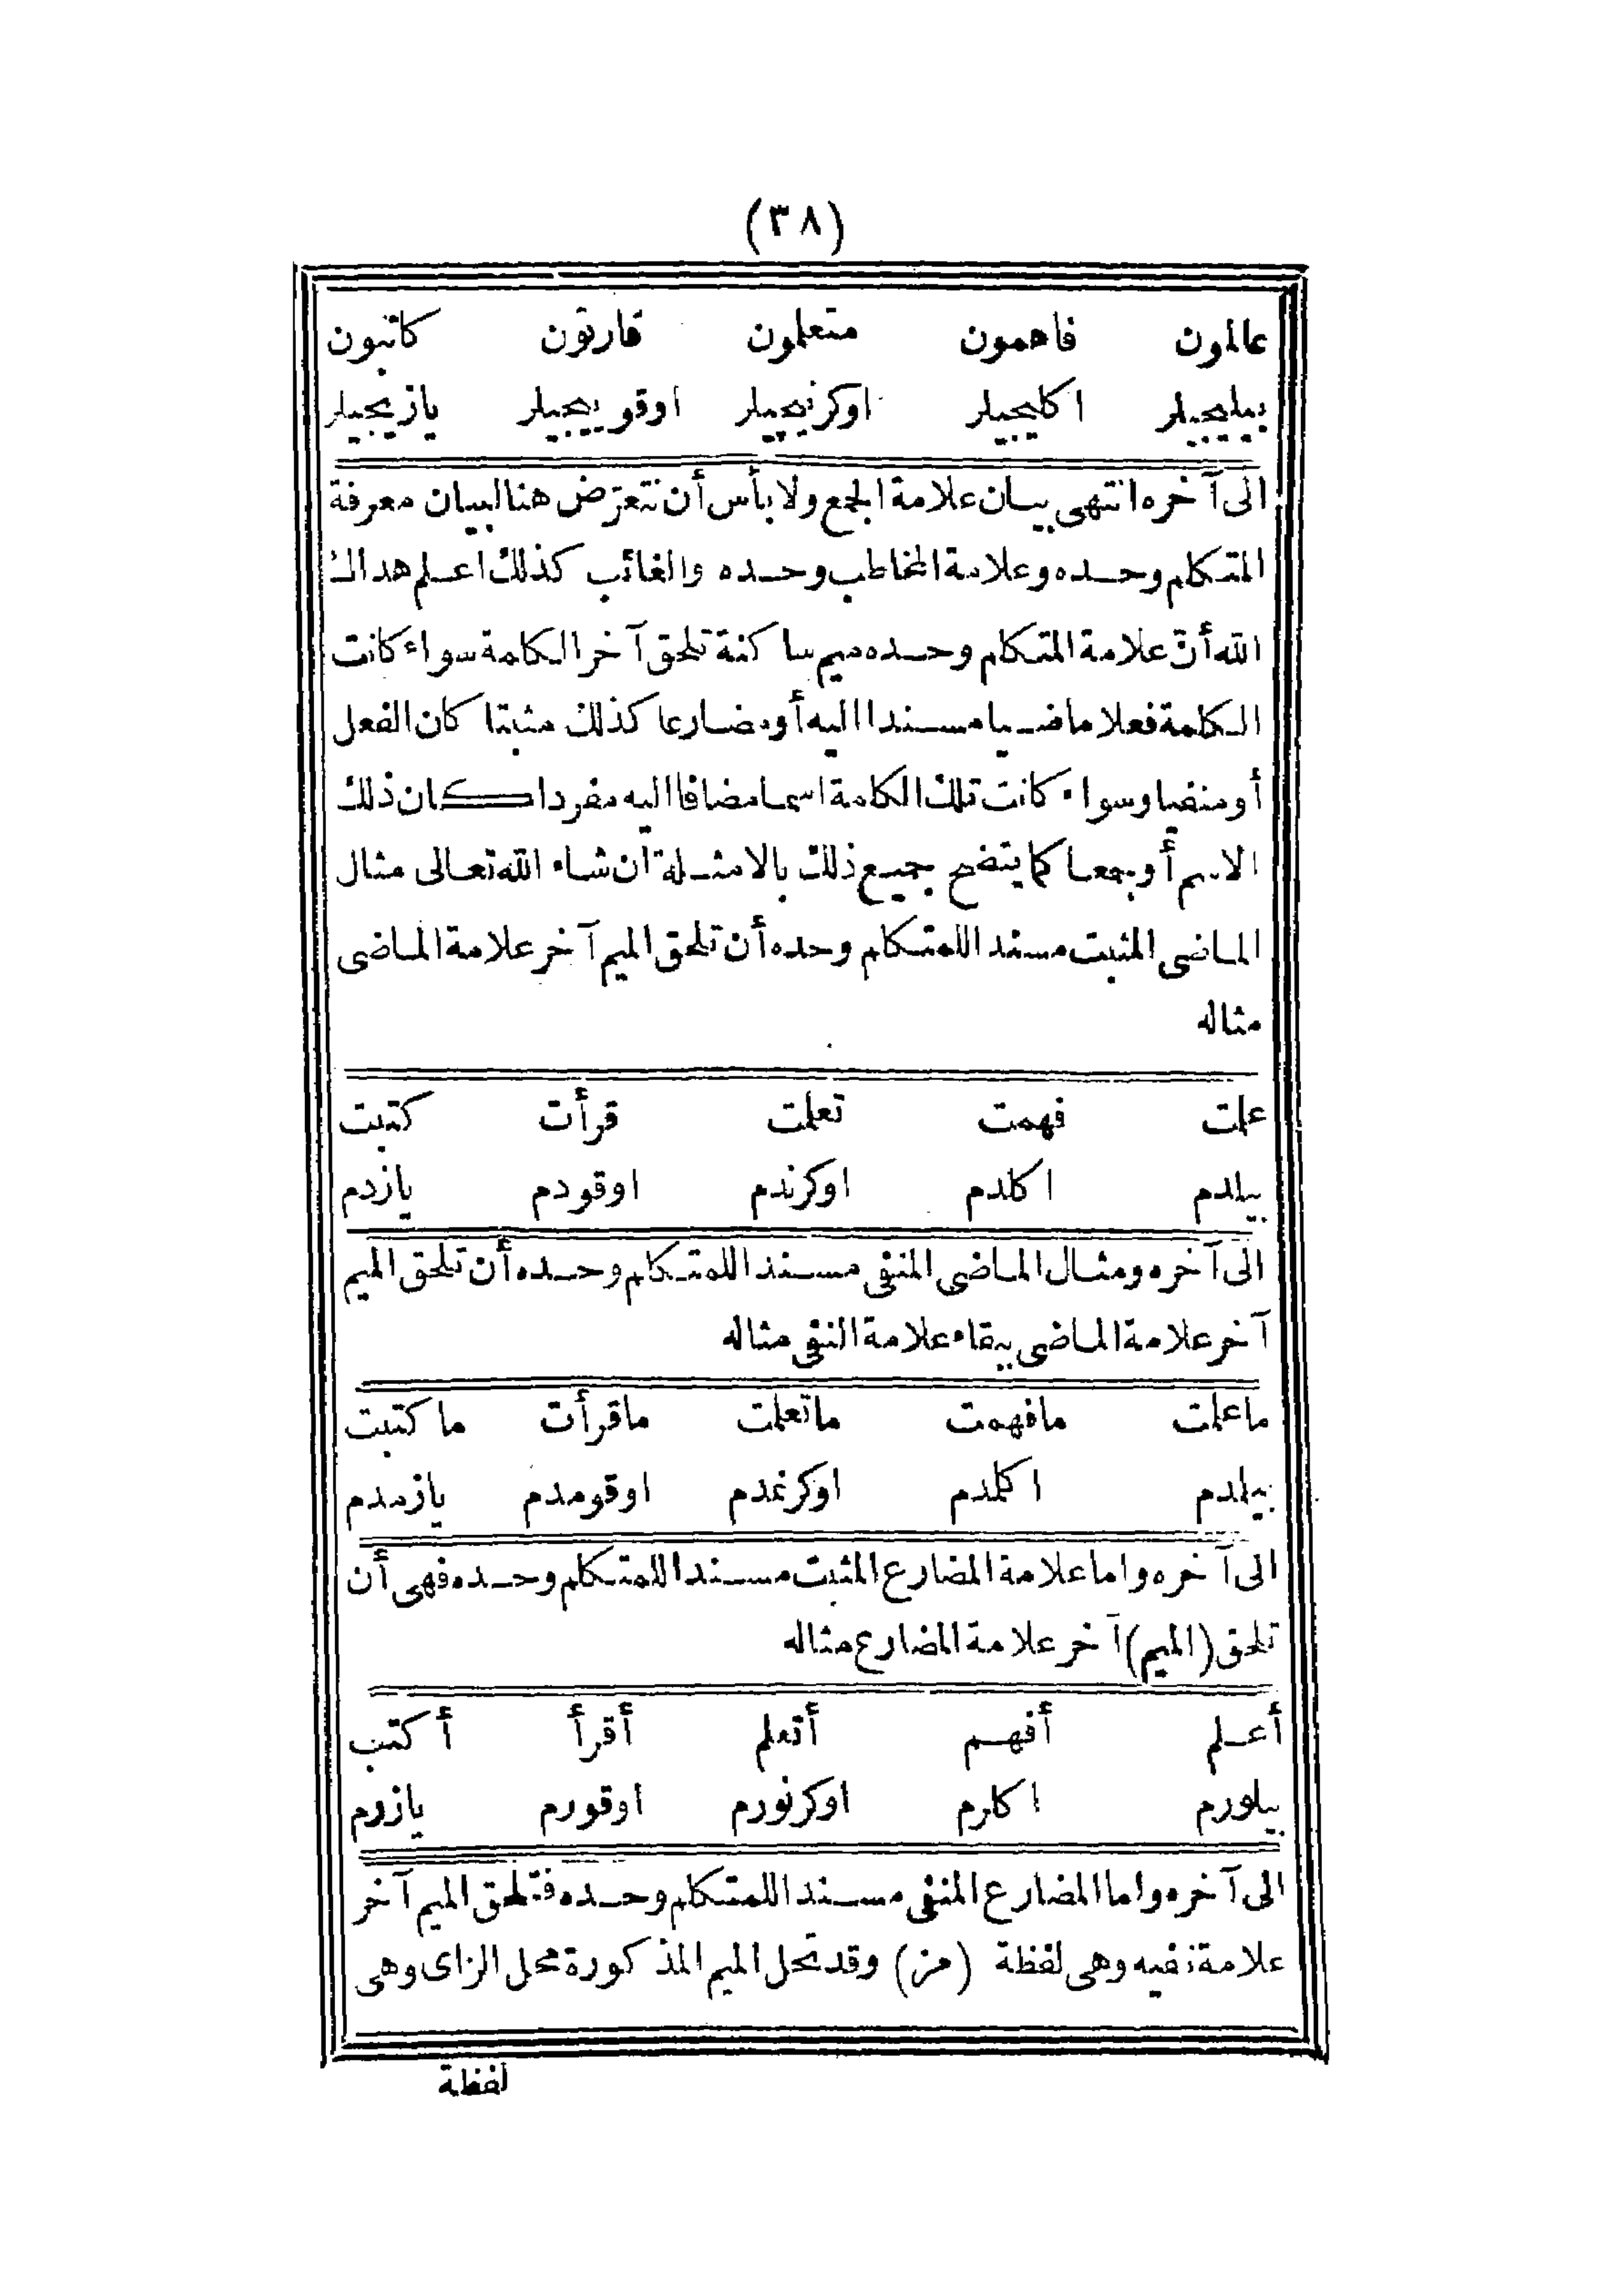 (٣٨)
عالمون فاهمون متعلمون قارئون كاتبون
بيليجيلر اكليجيلر اوكرنيجيلر اوقوييجيلر يازيجيلر
الى آخره انتهى بيان علامة الجمع ولا بأس أن نتعرّض هنا لبيان معرفة
المتكلم وحده وعلامة المخاطب وحده والغائب كذلك اعلم هداك
الله أنّ علامة المتكلم وحده ميم ساكنة تلحق آخر الكلمة سواء كانت
الكلمة فعلا ماضيا مسندا اليه أو مضارعا كذلك مثبتا كان الفعل
أو منفيا وسواء كانت تلك الكلمة اسما مضافا اليه مفردا كان ذلك
الاسم أو جمعا كما يتضح جميع ذلك بالامثلة ان شاء الله تعالى مثال
الماضى المثبت مسند اللمتكلم وحده أن تلحق الميم آخر علامة الماضى
مثاله
علمت فهمت تعلمت قرأت كتبت
بيلدم اكلدم اوكرندم اوقودم يازدم
الى آخره ومثال الماضى المنفى مسند اللمتكلم وحده أن تلحق الميم
آخر علامة الماضى ببقاء علامة النفى مثاله
ماعلمت مافهمت ماتعلمت ماقرأت ماكتبت
بيلمدم اكلمدم اوكرنمدم اوقومدم يازمدم
الى آخره واما علامة المضارع المثبت مسند اللمتكلم وحده فهى أن
تلحق (الميم) آخر علامة المضارع مثاله
أعلم أفهم أتعلم أقرأ أكتب
بيلورم اكلرم اوكرنورم اوقورم يازرم
الى آخره واما المضارع المنفى مسند اللمتكلم وحده فتلحق الميم آخر
علامة نفيه وهى لفظة (مز) وقد تحل الميم المذكورة محل الزاى وهى
لفظة